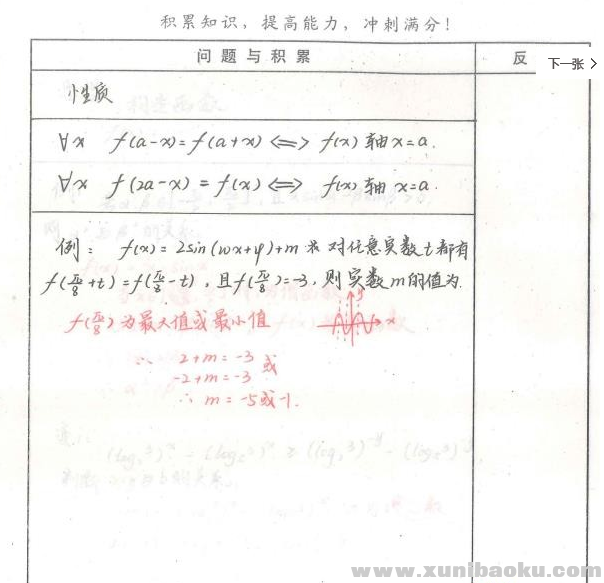 积累知识，提高能力，冲刺满分！
问题与积累
反
下一张 >
性质
∀x f(a-x)=f(a+x) <=> f(x) 轴 x=a.
∀x f(2a-x)=f(x) <=> f(x) 轴 x=a.
例： f(x)=2sin(wx+φ)+m 对任意实数t都有
f(π/8+t)=f(π/8-t)，且f(π/8)=-3，则实数m的值为.
f(π/8)为最大值或最小值
y
x
∴ 2+m=-3 或
-2+m=-3
∴ m=-5或-1.
www.xunibaoku.com